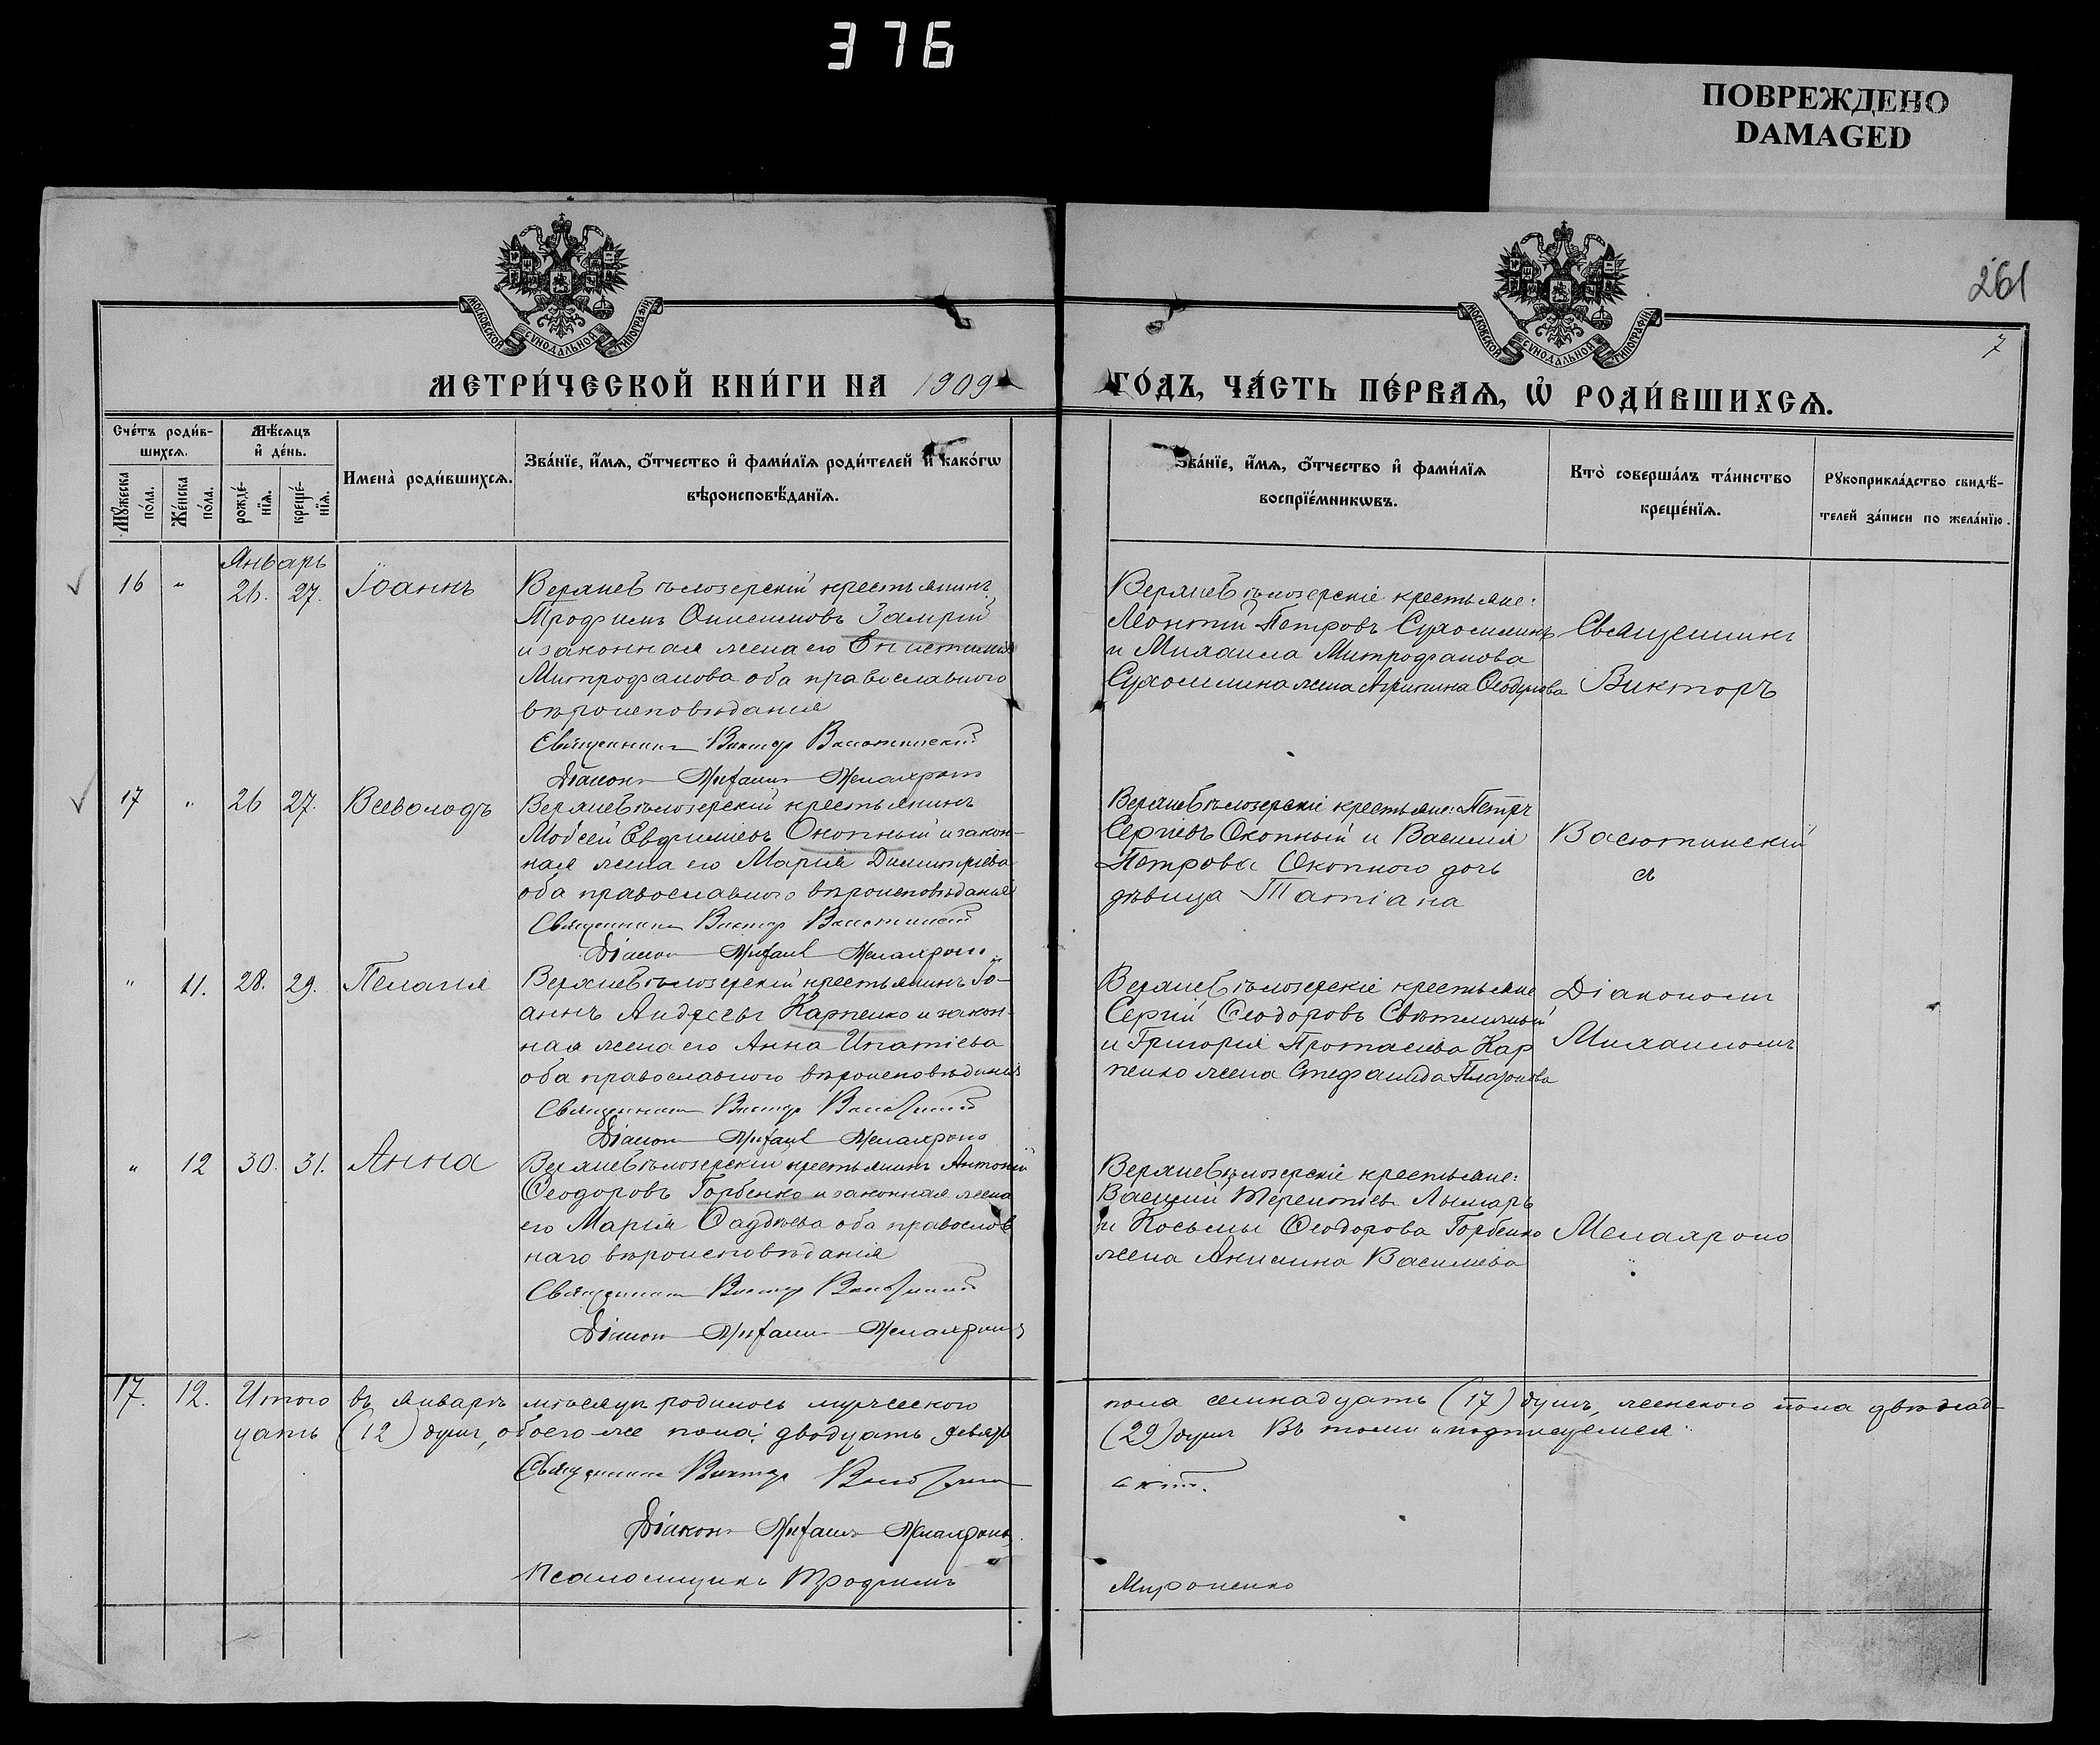 376
ПОВРЕЖДЕНО
DAMAGED
261
7
МОСКОВСКОЙ СѴНОДАЛЬНОЙ ТИПОГРАФІИ
МОСКОВСКОЙ СѴНОДАЛЬНОЙ ТИПОГРАФІИ
МЕТРИ́ЧЕСКОЙ КНИ́ГИ НА 1909
ГО́ДЪ, ЧА́СТЬ ПЕ́РВАѦ, Ѡ҆ РОДИ́ВШИХСѦ.
Сче́тъ роди́в-
шихсѧ.
Мѣ́сѧцъ
и҆ де́нь.
Мꙋ́жеска
по́ла.
Же́нска
по́ла.
рожде́-
нїѧ.
креще́-
нїѧ.
Имена̀ роди́вшихсѧ.
Зва́нїе, и҆́мѧ, ѻ҆́тчество и҆ фами́лїѧ роди́телей и҆ како́гѡ
вѣроисповѣ́данїѧ.
Зва́нїе, и҆́мѧ, ѻ҆́тчество и҆ фами́лїѧ
воспрїе́мникѡвъ.
Кто̀ соверша́лъ та́инство
креще́нїѧ.
Рꙋкоприкла́дство свидѣ́-
телей за́писи по жела́нїю.
Январь
16 " 26. 27. Іоаннъ
Верхнебѣлозерскій крестьянинъ
Трофимъ Онисимовъ Замрій
и законная жена его
Митрофанова оба православнаго
вѣроисповѣданія
Священникъ Викторъ Васютинскій
Діаконъ Михаилъ Мелахроно
Верхнебѣлозерскіе крестьяне:
Леонтій Петровъ Сухомлинъ
и Михаила Митрофанова
Сухомлина жена Агрипина Ѳеодорова
Священникъ
Викторъ
17 " 26 27. Всеволодъ
Верхнебѣлозерскій крестьянинъ
Моѵсей Евфиміевъ Окопный и закон-
ная жена его Марія Димитріева
оба православнаго вѣроисповѣданія
Священникъ Викторъ Васютинскій
Діаконъ Михаилъ Мелахроно
Верхнебѣлозерскіе крестьяне: Петръ
Сергіевъ Окопный и Василія
Петрова Окопного дочь
дѣвица Татіана
Васютинскій
съ
" 11. 28. 29. Пелагія
Верхнебѣлозерскій крестьянинъ Іо-
аннъ Андреевъ Карпенко и закон-
ная жена его Анна Ипатіева
оба православнаго вѣроисповѣданія
Священникъ Викторъ Васютинскій
Діаконъ Михаилъ Мелахроно
Верхнебѣлозерскіе крестьяне
Сергій Ѳеодоровъ Свѣтличный
и Григорія Протасіева Кар
пенко жена Стефанида
Діакономъ
Михаиломъ
" 12 30. 31. Анна
Верхнебѣлозерскій крестьянинъ Антоній
Ѳеодоровъ Горбенко и законная жена
его Марія Ѳаддѣева оба православ
наго вѣроисповѣданія
Священникъ Викторъ Васютинскій
Діаконъ Михаилъ Мелахроно
Верхнебѣлозерскіе крестьяне:
Василій Терентіев Лымарь
и Косьмы Ѳеодорова Горбенко
жена Акилина Василіева
Мелахроно
17. 12. Итого въ январѣ мѣсяцѣ родилось мужескаго
цать (12) душъ, обоего же пола двадцать девять
пола семнадцать (17) душъ, женскаго пола двѣнад-
(29) душъ Въ томъ и подписуемся:
Священникъ Викторъ Васютин
скій.
Діаконъ Михаилъ Мелахроно
Псаломщикъ Трофимъ
Мироненко